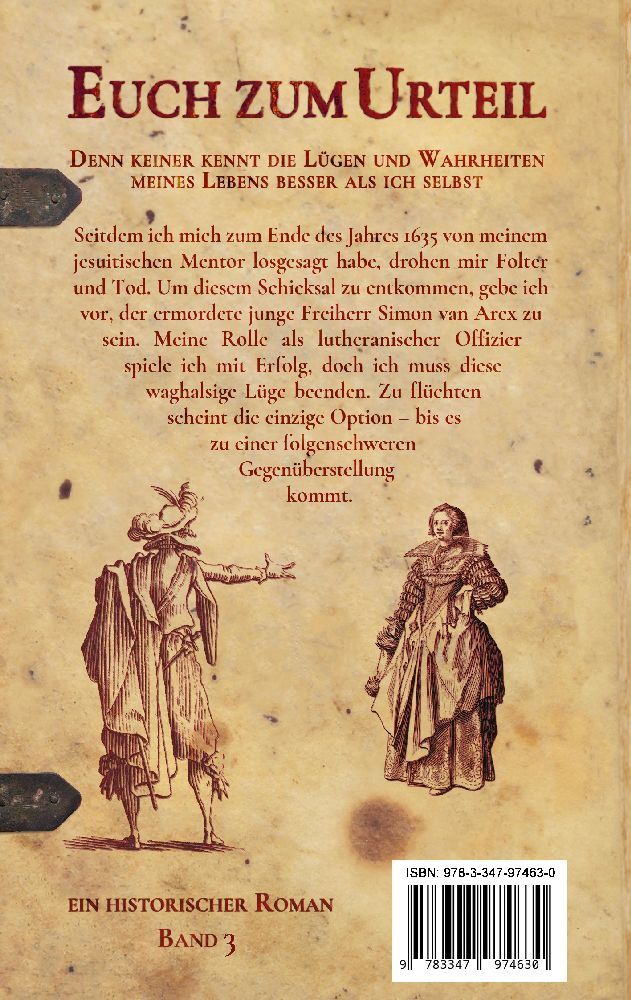 Euch zum Urteil
Denn keiner kennt die Lügen und Wahrheiten
meines Lebens besser als ich selbst
Seitdem ich mich zum Ende des Jahres 1635 von meinem
jesuitischen Mentor losgesagt habe, drohen mir Folter
und Tod. Um diesem Schicksal zu entkommen, gebe ich
vor, der ermordete junge Freiherr Simon van Arex zu
sein. Meine Rolle als lutheranischer Offizier
spiele ich mit Erfolg, doch ich muss diese
waghalsige Lüge beenden. Zu flüchten
scheint die einzige Option – bis es
zu einer folgenschweren
Gegenüberstellung
kommt.
ein historischer Roman
Band 3
ISBN: 978-3-347-97463-0
9 783347 974630